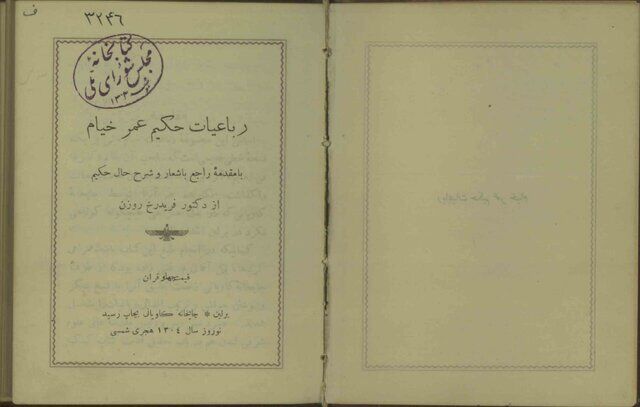 ف
۳۲۴۶
کتابخانهٔ
مجلس شورای ملی
رباعیات حکیم عمر خیام
بامقدمهٔ راجع باشعار و شرح حال حکیم
از دکتور فریدرخ روزن
قیمت چهار قران
برلین * چاپخانه کاویانی بچاپ رسید
نوروز سال ۱۳۰٤ هجری شمسی